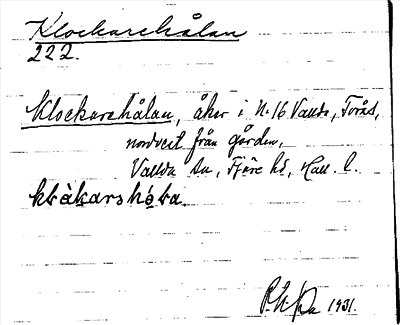 Klockarehålan
222.
Klockarehålan, åker i N:16 Vallda, Torås,
nordväst från gården,
Vallda sn, Fjäre hd, Hall. l.
1931.